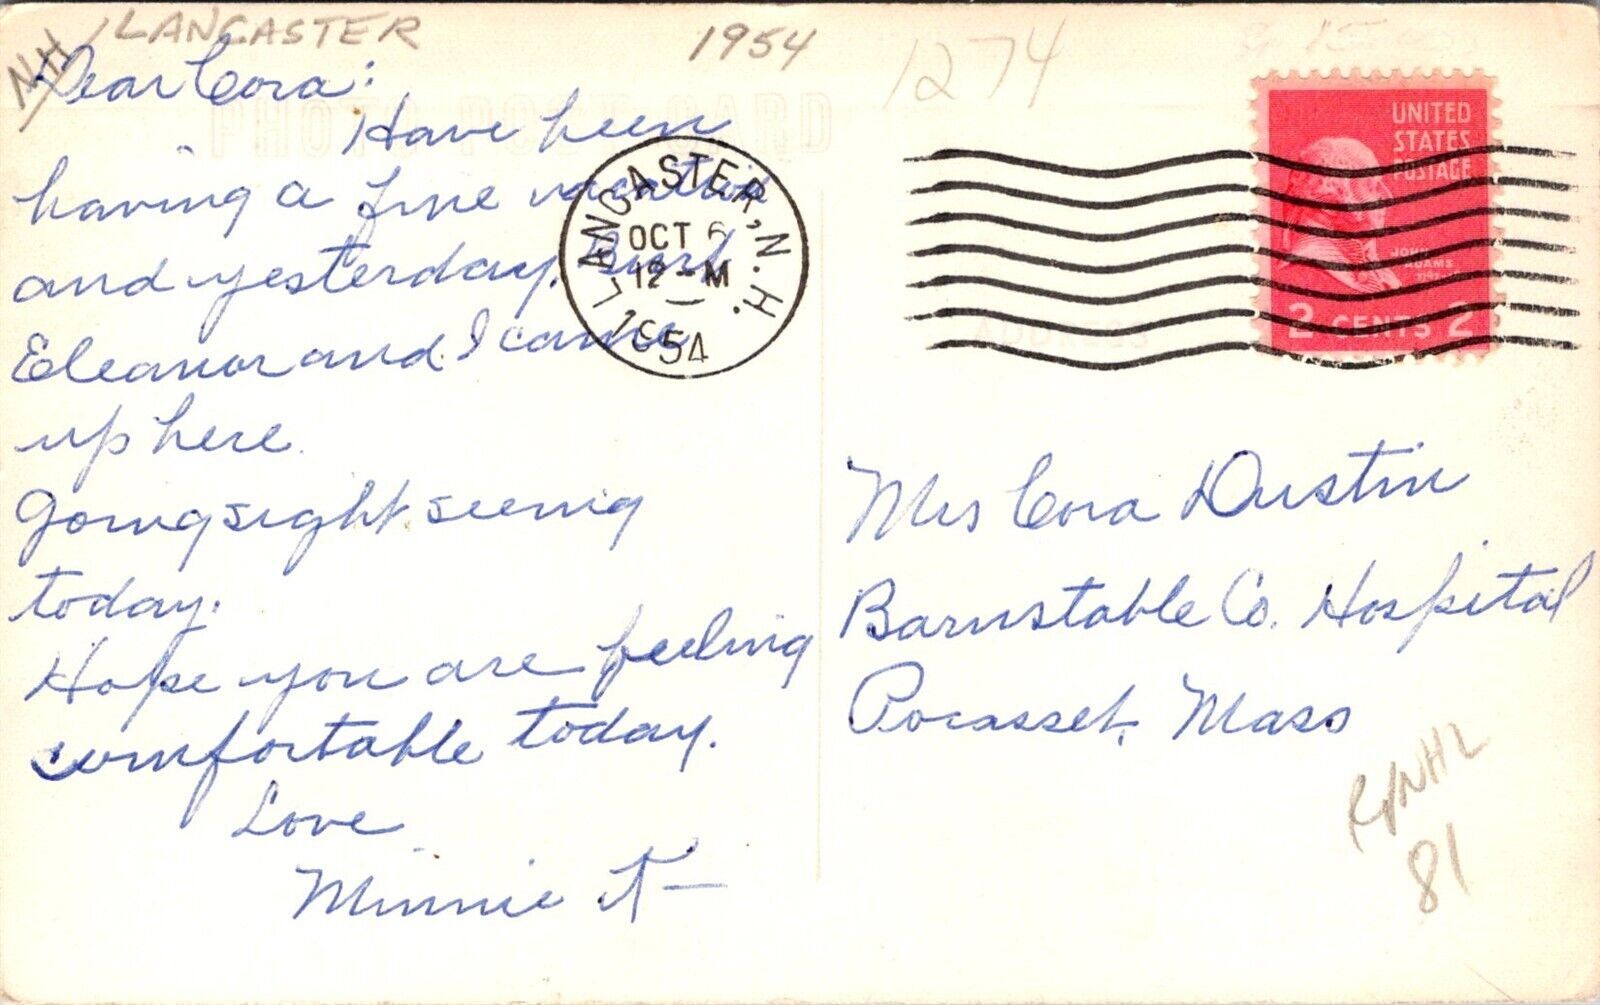 NH / LANCASTER
1954
1274
Dear Cora:
PHOTO POST CARD
Have been
having a fine vacation
and yesterday,
Eleanor and I came
up here.
Going sight seeing
today.
Hope you are feeling
comfortable today.
Love
Minnie
LANCASTER, N.H.
OCT 6
12 - M
1954
UNITED
STATES
POSTAGE
JOHN
ADAMS
2 CENTS 2
ADDRESS
Mrs Cora Dustin
Barnstable Co. Hospital
Pocasset, Mass
81